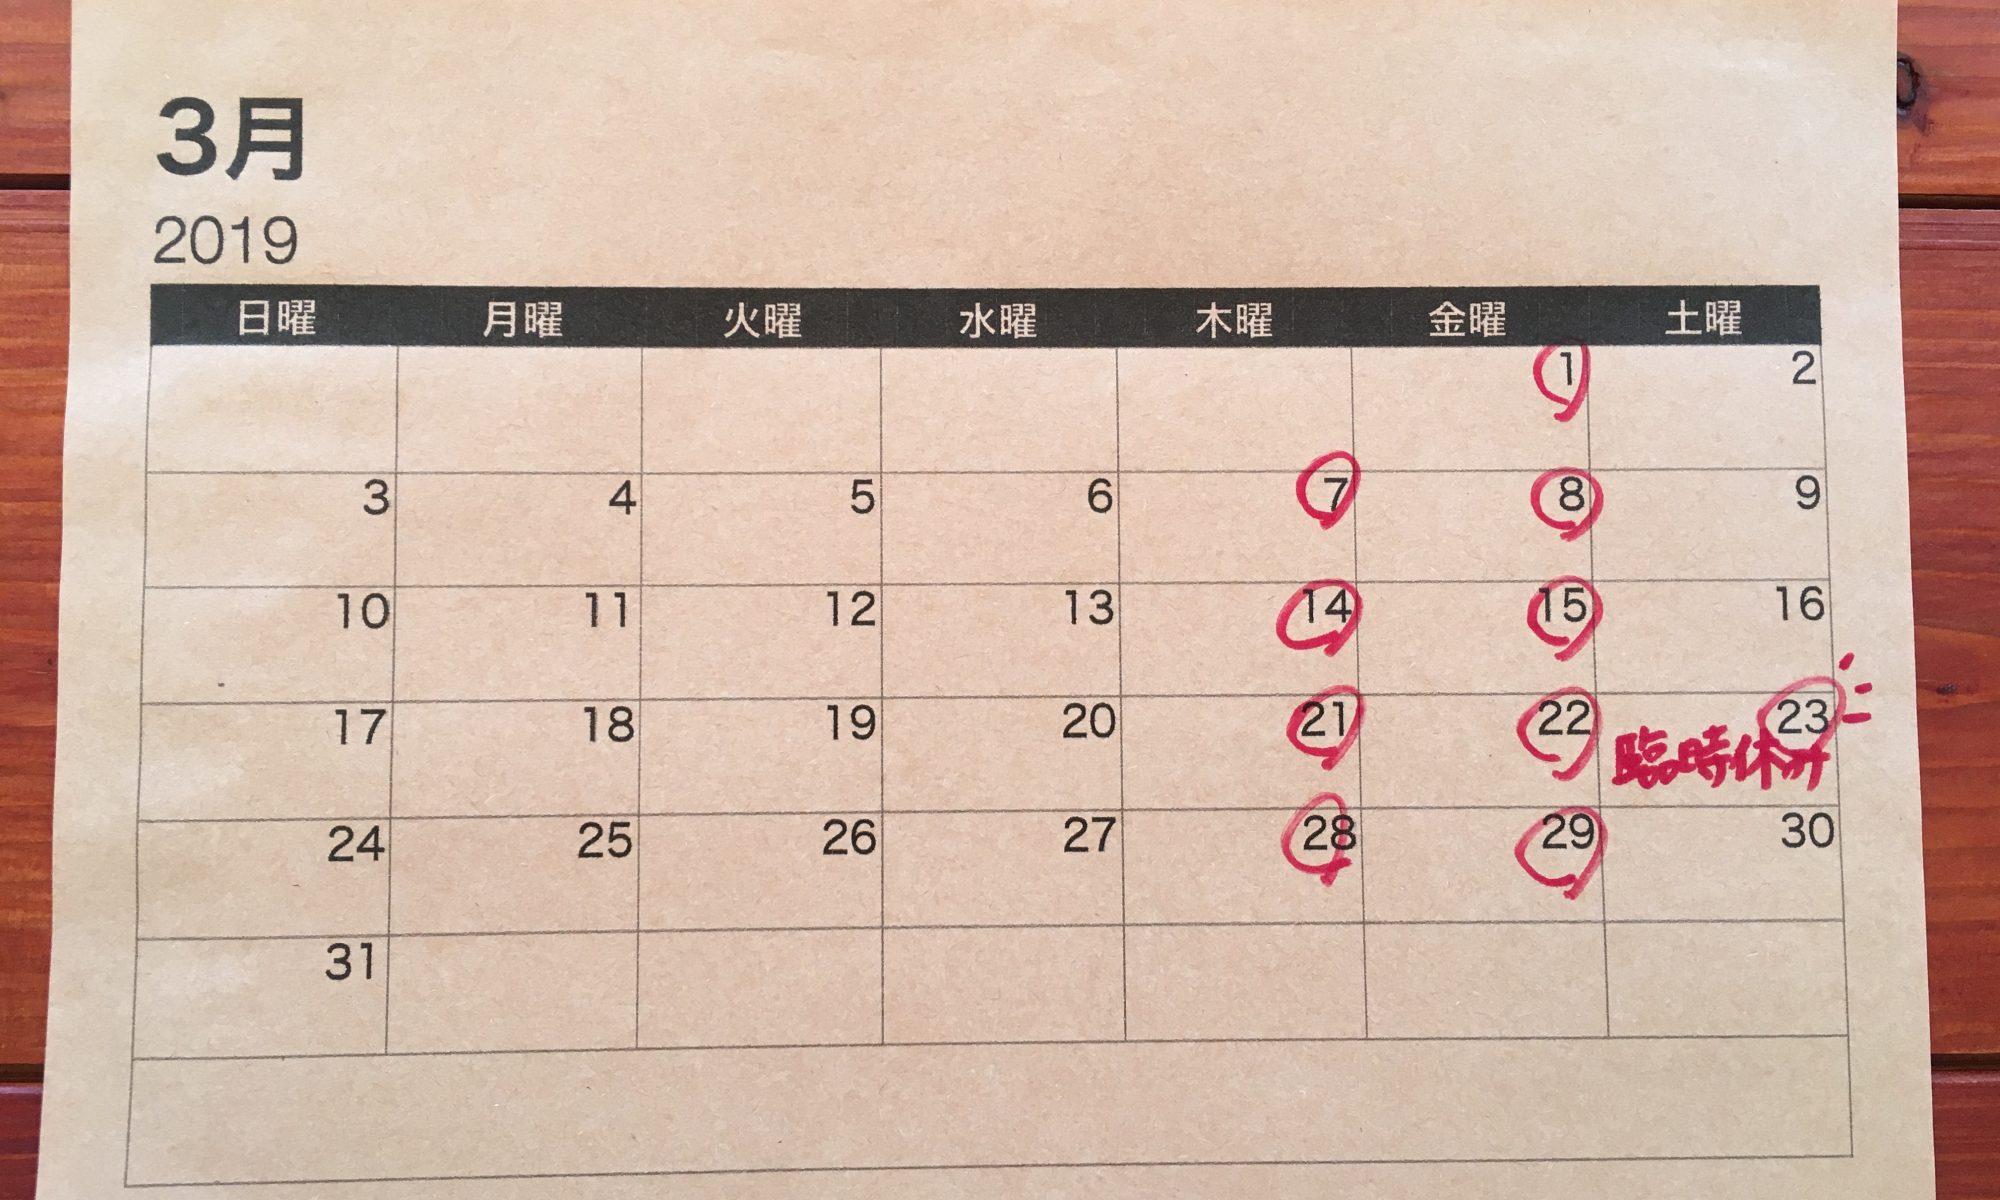 3月
2019
日曜 月曜 火曜 水曜 木曜 金曜 土曜
1 2
3 4 5 6 7 8 9
10 11 12 13 14 15 16
17 18 19 20 21 22 23
臨時休み
24 25 26 27 28 29 30
31